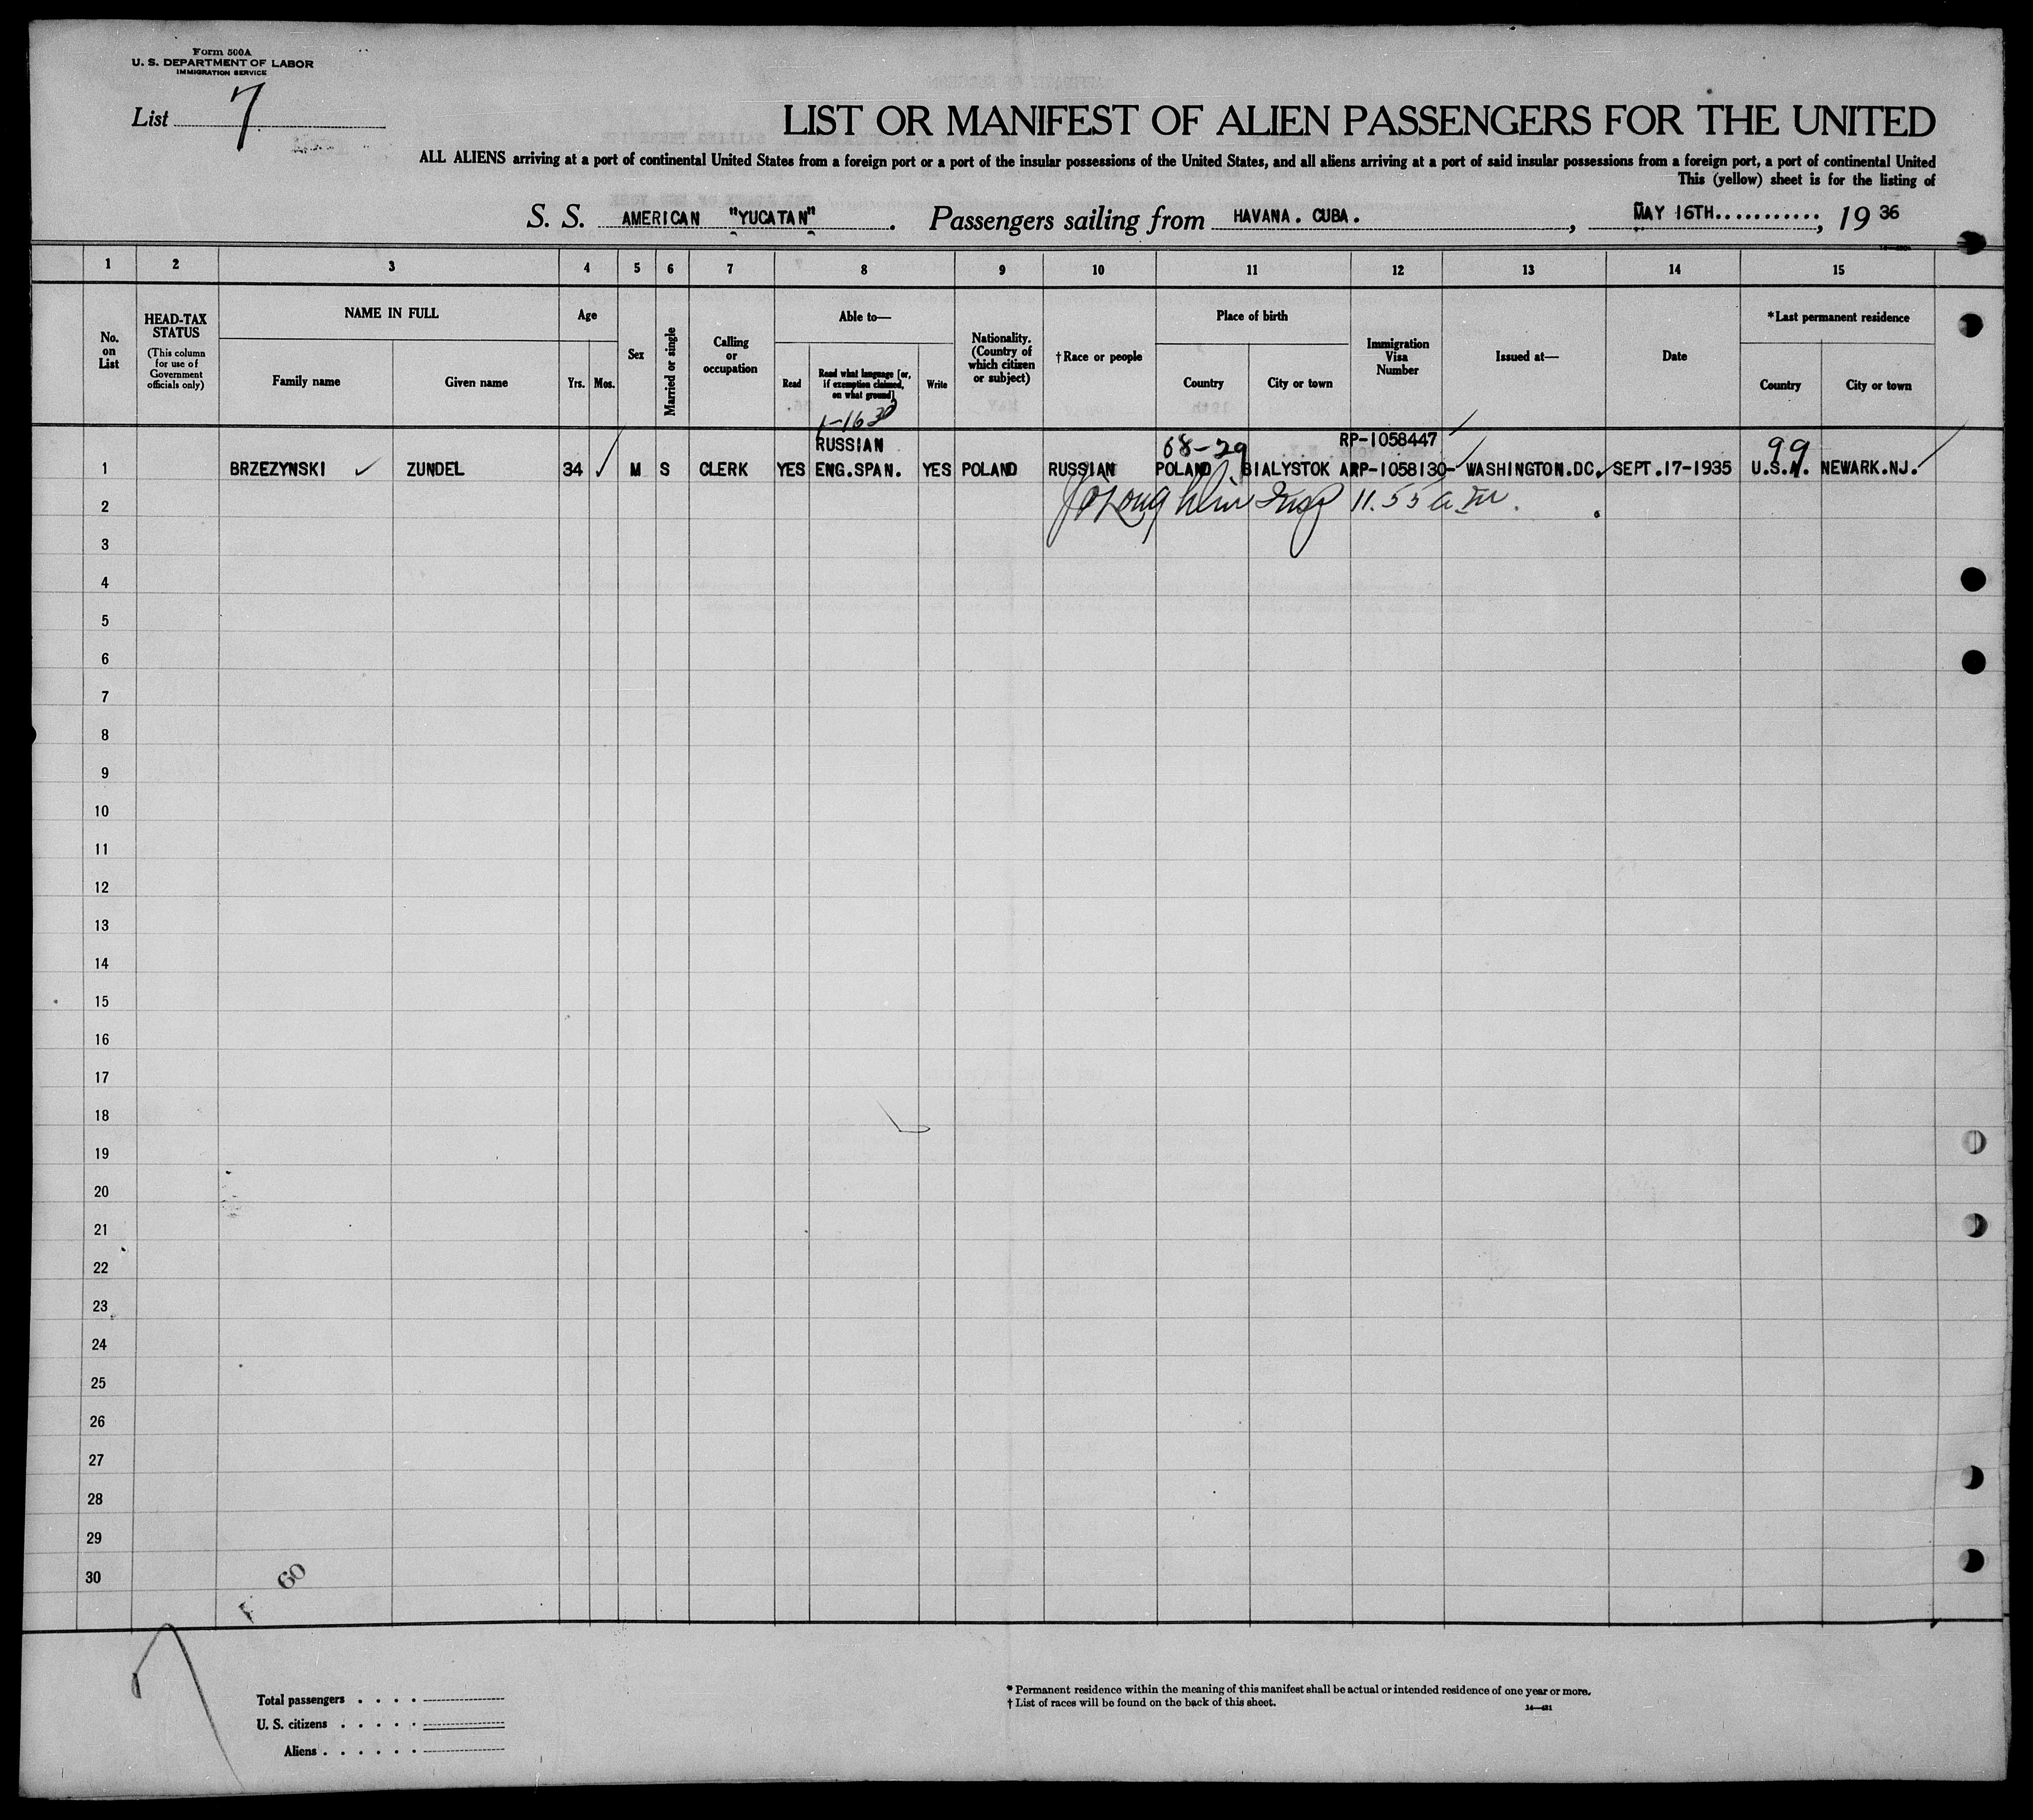 Form 500A
U. S. DEPARTMENT OF LABOR
IMMIGRATION SERVICE
List 7
LIST OR MANIFEST OF ALIEN PASSENGERS FOR THE UNITED
ALL ALIENS arriving at a port of continental United States from a foreign port or a port of the insular possessions of the United States, and all aliens arriving at a port of said insular possessions from a foreign port, a port of continental United
This (yellow) sheet is for the listing of
S. S. AMERICAN "YUCATAN". Passengers sailing from HAVANA. CUBA. , MAY 16TH..........., 19 36
1 2 3 4 5 6 7 8 9 10 11 12 13 14 15
No. on List
HEAD-TAX STATUS
(This column for use of Government officials only)
NAME IN FULL
Family name
Given name
Age
Yrs.
Mos.
Sex
Married or single
Calling or occupation
Able to—
Read
Read what language [or, if exemption claimed, on what ground]
Write
Nationality. (Country of which citizen or subject)
†Race or people
Place of birth
Country
City or town
Immigration Visa Number
Issued at—
Date
*Last permanent residence
Country
City or town
RUSSIAN 68-29 RP-1058447 99
1 BRZEZYNSKI ZUNDEL 34 M S CLERK YES ENG.SPAN. YES POLAND RUSSIAN POLAND BIALYSTOK ARP-1058130- WASHINGTON.DC. SEPT.17-1935 U.S.A. NEWARK.NJ.
2 Insp 11.55 a.m.
3
4
5
6
7
8
9
10
11
12
13
14
15
16
17
18
19
20
21
22
23
24
25
26
27
28
29
30
60
Total passengers . . . .
U. S. citizens . . . . .
Aliens . . . . . .
* Permanent residence within the meaning of this manifest shall be actual or intended residence of one year or more.
† List of races will be found on the back of this sheet.